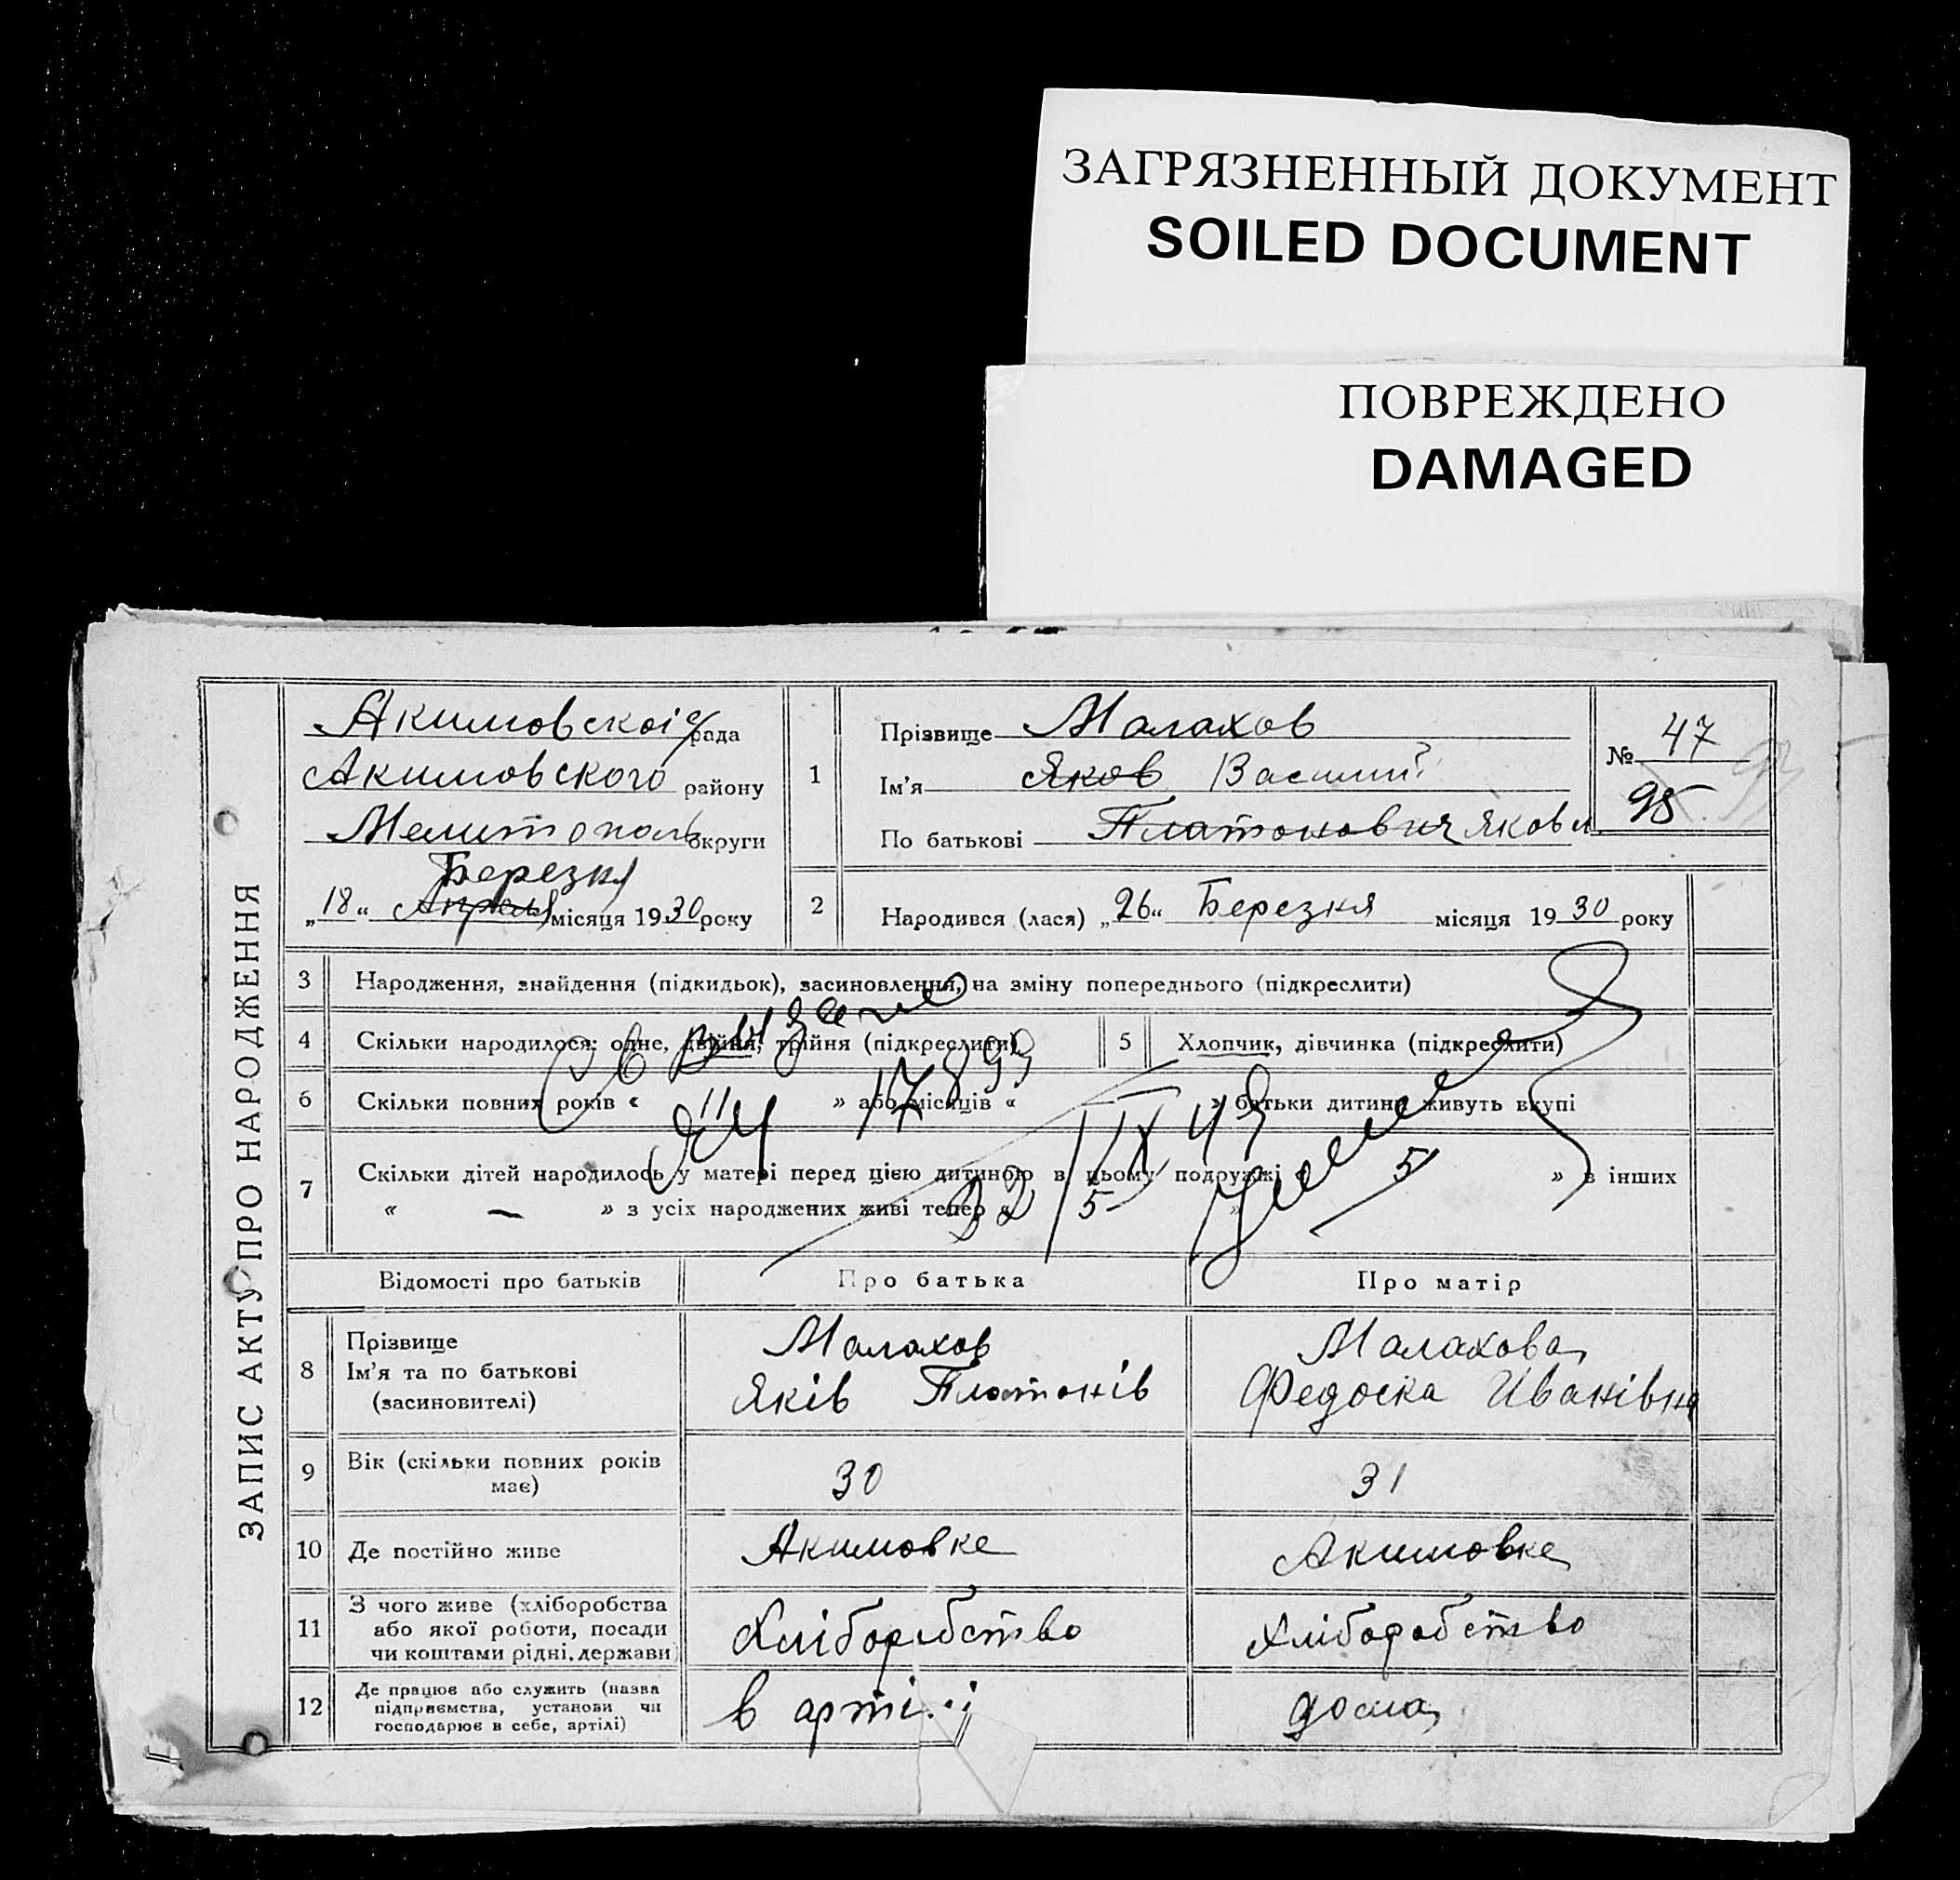 ЗАГРЯЗНЕННЫЙ ДОКУМЕНТ
SOILED DOCUMENT
ПОВРЕЖДЕНО
DAMAGED
ЗАПИС АКТУ ПРО НАРОДЖЕННЯ
Акимовскоі с/рада
Акимовского району
Мелитополь округи
Березня
„18“ Апреля місяця 1930 року
1
Прізвище Малахов
Ім'я Яков Василий
По батькові Платонович Яковл.
№ 47
98
2
Народився (лася) „26“ Березня місяця 1930 року
3 Народження, знайдення (підкидьок), засиновлення, на зміну попереднього (підкреслити)
4 Скільки народилося: одне, двійня, трійня (підкреслити)
5 Хлопчик, дівчинка (підкреслити)
6 Скільки повних років « 11 » або місяців « » батьки дитини живуть вкупі
7 Скільки дітей народилось у матері перед цією дитиною в цьому подружжі « 5 » в інших
« — » з усіх народжених живі тепер « 5 »
Св выдано
ЯЦ 17899
IX 49
Відомості про батьків Про батька Про матір
8 Прізвище
Ім'я та по батькові
(засиновителі)
Малахов
Яків Платонів
Малахова
Федоска Иванівна
9 Вік (скільки повних років
має)
30
31
10 Де постійно живе
Акимовке
Акимовке
11 З чого живе (хліборобства
або якої роботи, посади
чи коштами рідні, держави)
Хліборобство
Хліборобство
12 Де працює або служить (назва
підприємства, установи чи
господарює в себе, артілі)
в арті
дома